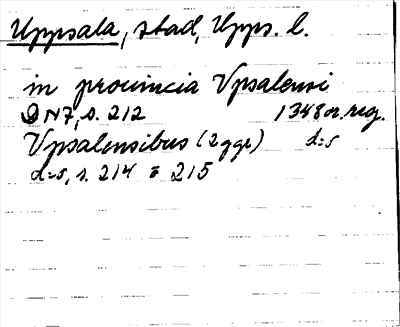 Uppsala, stad, Upps. l.
in provincia Vpsalensi
DN 7, s. 212 1348 or. reg.
Vpsalensibus (2 ggr) d:s
d:s, s. 214 o 215